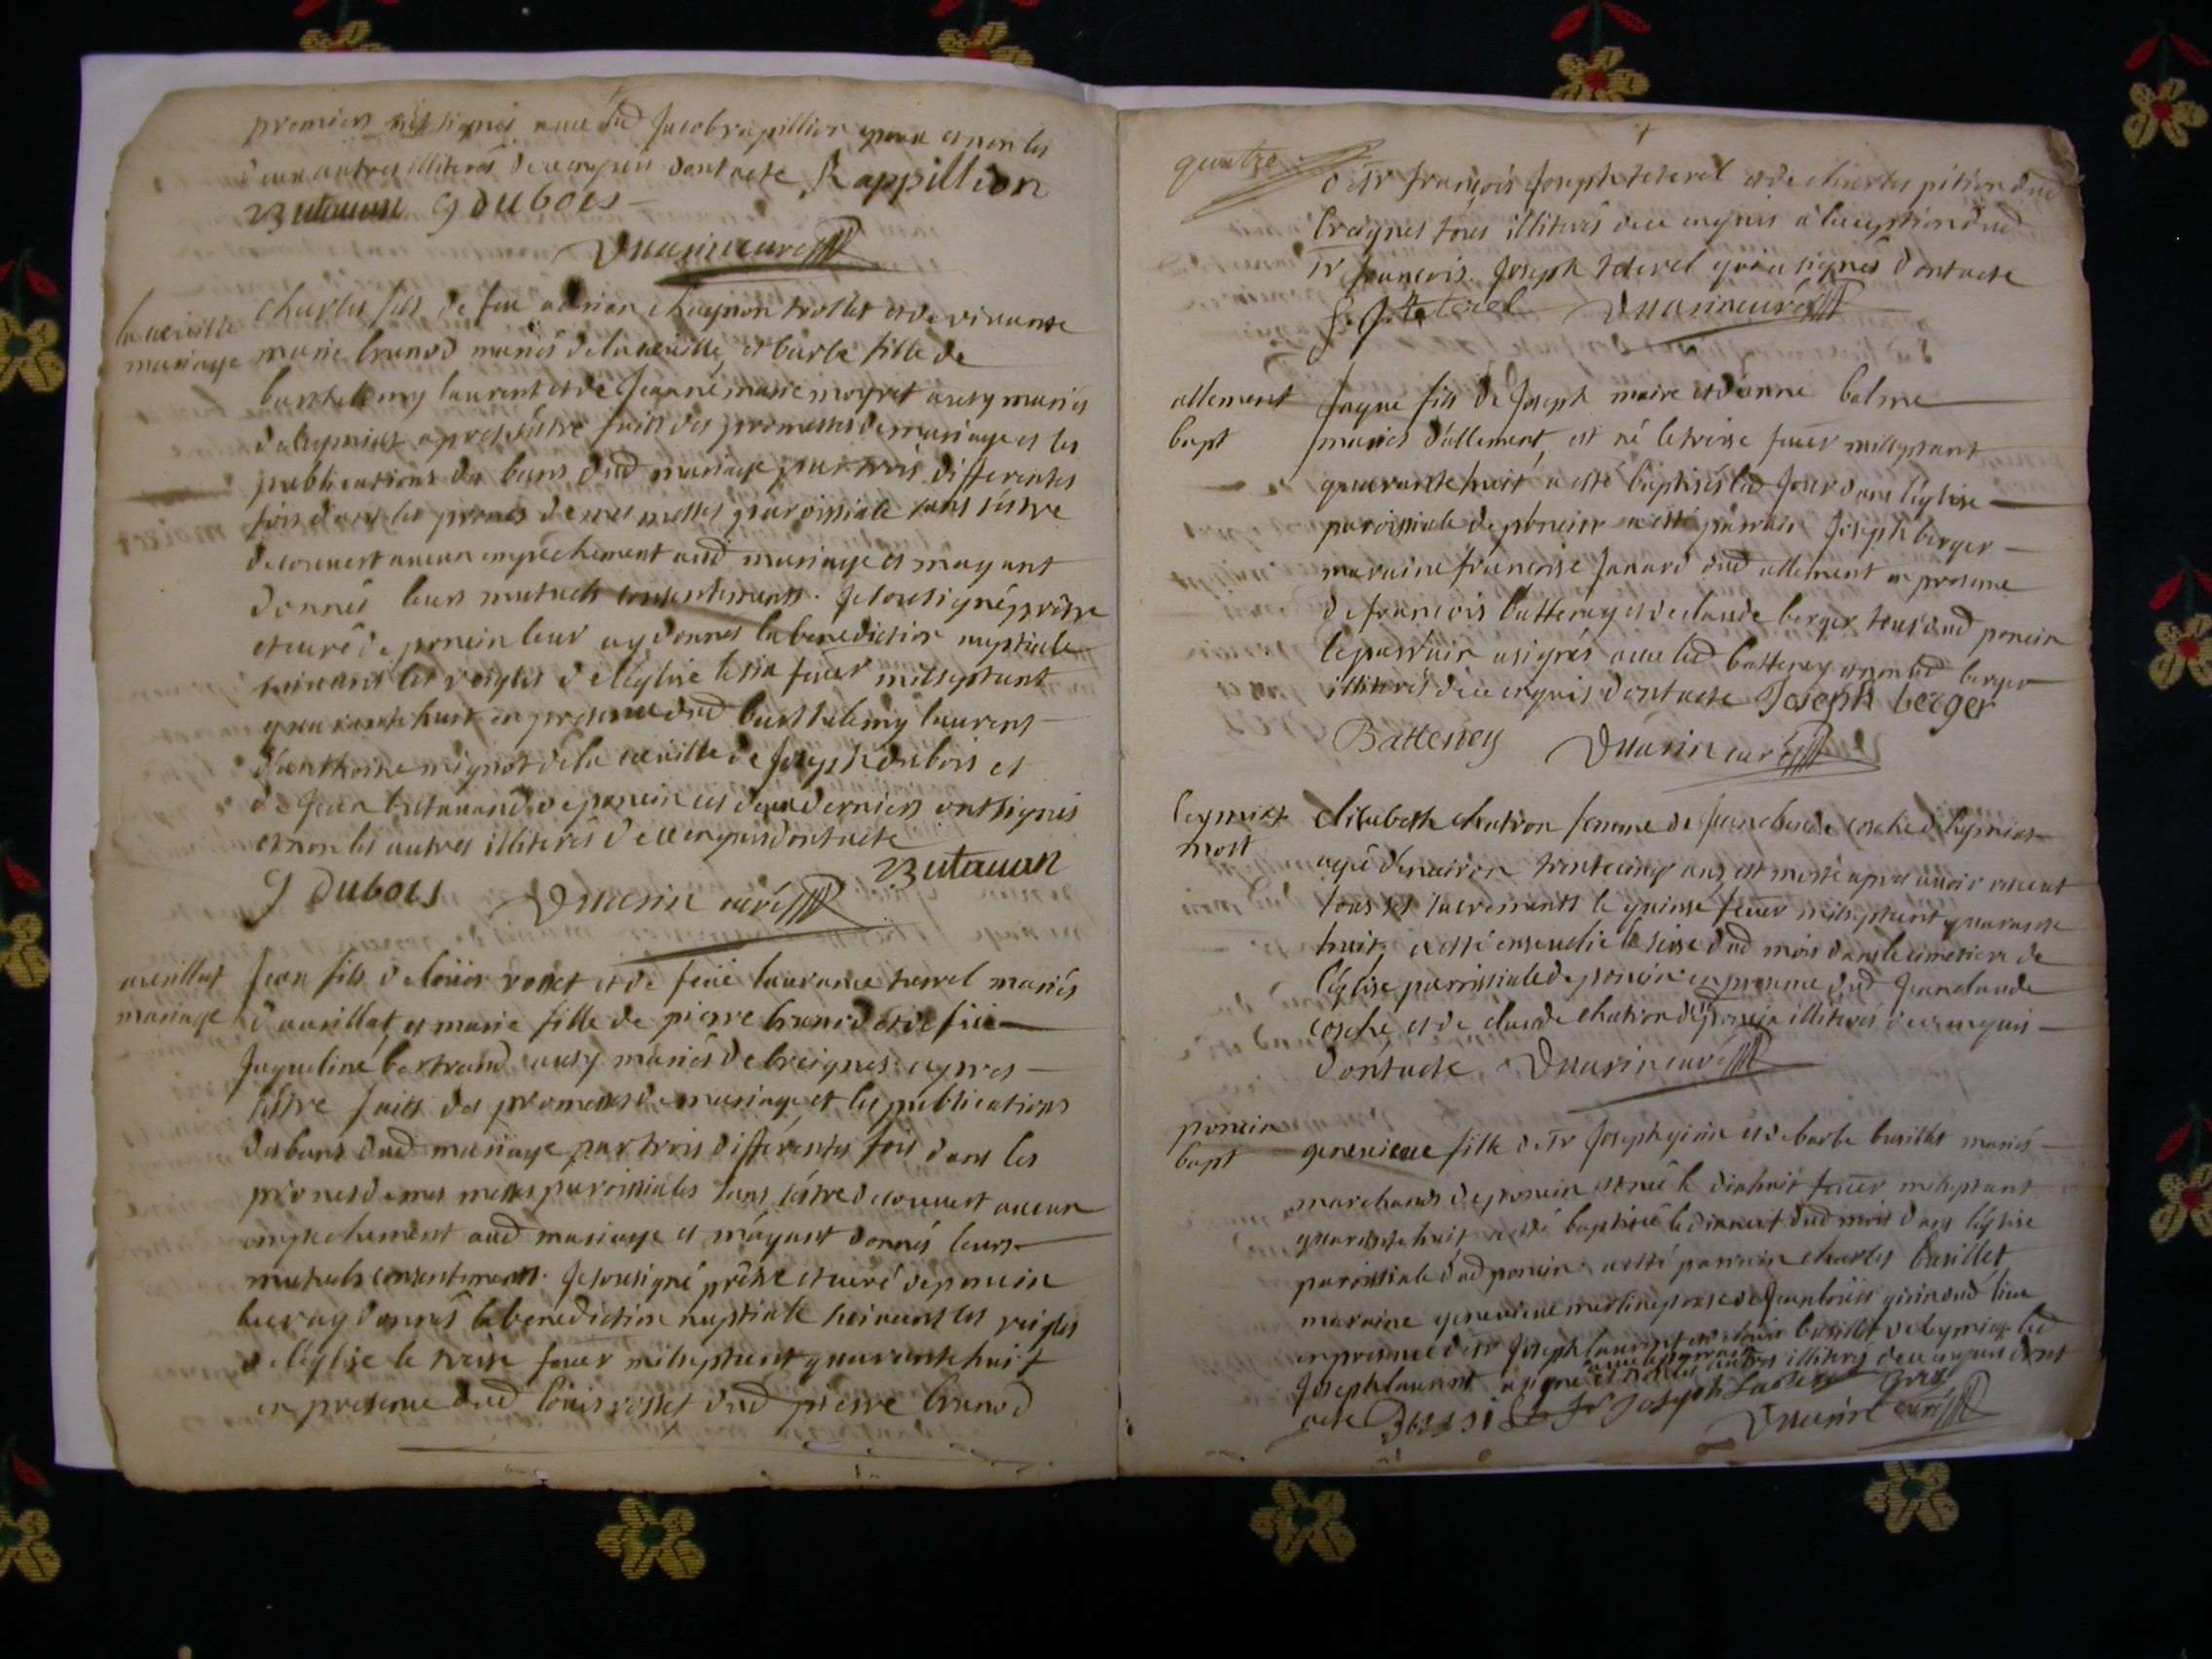 premiers signés avec led Jacob rapillion epoux et non les
deux autres illiterés de ce enquis dont acte Rappillion
Butavan J DUBOIS
Duarin curé
la cueille
mariage
Charles fils de feu adrian chagnon trollet et de vivante
marie brunod mariés de la cueille et barbe fille de
barthelemy laurent et de Jeanne marie moyret ausy mariés
de leymiat apres s'estre faits des promesses de mariage et les
publications des bans dud mariage par trois differentes
fois dans les prones de mes messes paroissiale sans s'estre
decouvert aucun empechement aud mariage et m'ayant
donnés leurs mutuels consentements. Je sousigné prêtre
et curé de poncin leur ay donnés la benediction nuptiale
suivant les reigles de l'eglise le six fever milseptcent
quarante huit en presence dud barthelemy laurent
d'anthoine mignot de la cueille de Joseph dubois et
de Jean butavand de poncin ces deux derniers ont signés
et non les autres illiterés de ce enquis dont acte
Butavan
J DUBOIS Duarin curé
avrillat
mariage
Jean fils de loüis rosset et de feüe laurance terrel mariés
d'avrillat, et marie fille de pierre brunod et de feüe
Jaqueline bertrand ausy mariés de breignes apres
s'estre faits des promesses de mariage et les publications
des bans dud mariage par trois differentes fois dans les
prones de mes messes paroissiales sans s'estre decouvert aucun
empechement aud mariage et m'ayant donnés leurs
mutuels consentements. Je sousigné prêtre et curé de poncin
leur ay donnés la benediction nuptiale suivant les reigles
de l'eglise le treise fever milseptcent quarante huit
en presence dud loüis rosset dud pierre brunod
quatre
de sr françois Joseph teterel et de charles pitiou dud
breignes tous illiterés de ce enquis à l'exception dud
sr françois Joseph teterel qui a signés dont acte
f. J. teterel Duarin curé
allement
bapt
Jaque fils de Joseph maire et d'anne balme
mariés d'allement, est né le treise fever milseptcent
quarante huit a esté baptisés led Jour dans l'eglise
paroissiale de poncin a esté parrain Joseph berger
maraine françoise Janard dud allement en presence
de françois batteney et de claude berger tous dud poncin
le parrain a signés avec led batteney et non led berger
illiterés de ce enquis dont acte Joseph berger
Batteney Duarin curé
leymiat
mort
elisabeth chatron femme de Jean claude cochet de leymiat
agé d'environ trente cinq ans, est morte apres avoir receut
tous ses sacrements le quinse fever milseptcent quarante
huit, a esté ensevelie le seise dud mois dans le cimetiere de
l'eglise parroissiale de poncin en presence dud Jean claude
coché et de claude chatron de poncin illiterés de ce enquis
dont acte Duarin curé
poncin
bapt
genevieve fille de sr Joseph girin et de barbe basillet mariés
marchands de poncin est née le dixhuit fever milseptcent
quarante huit a esté baptisée le dixneuf dud mois dans l'eglise
paroissiale dud poncin a esté parrain charles basillet
maraine genevieve merlin epouse de Jean loüis girin dud lieu
en presence de sr Joseph laurent et de loüis basillet de leymiat led
Joseph laurent a signé avec le parrain et non les autres illiterés de ce enquis dont
acte Joseph Laurent
Duarin curé